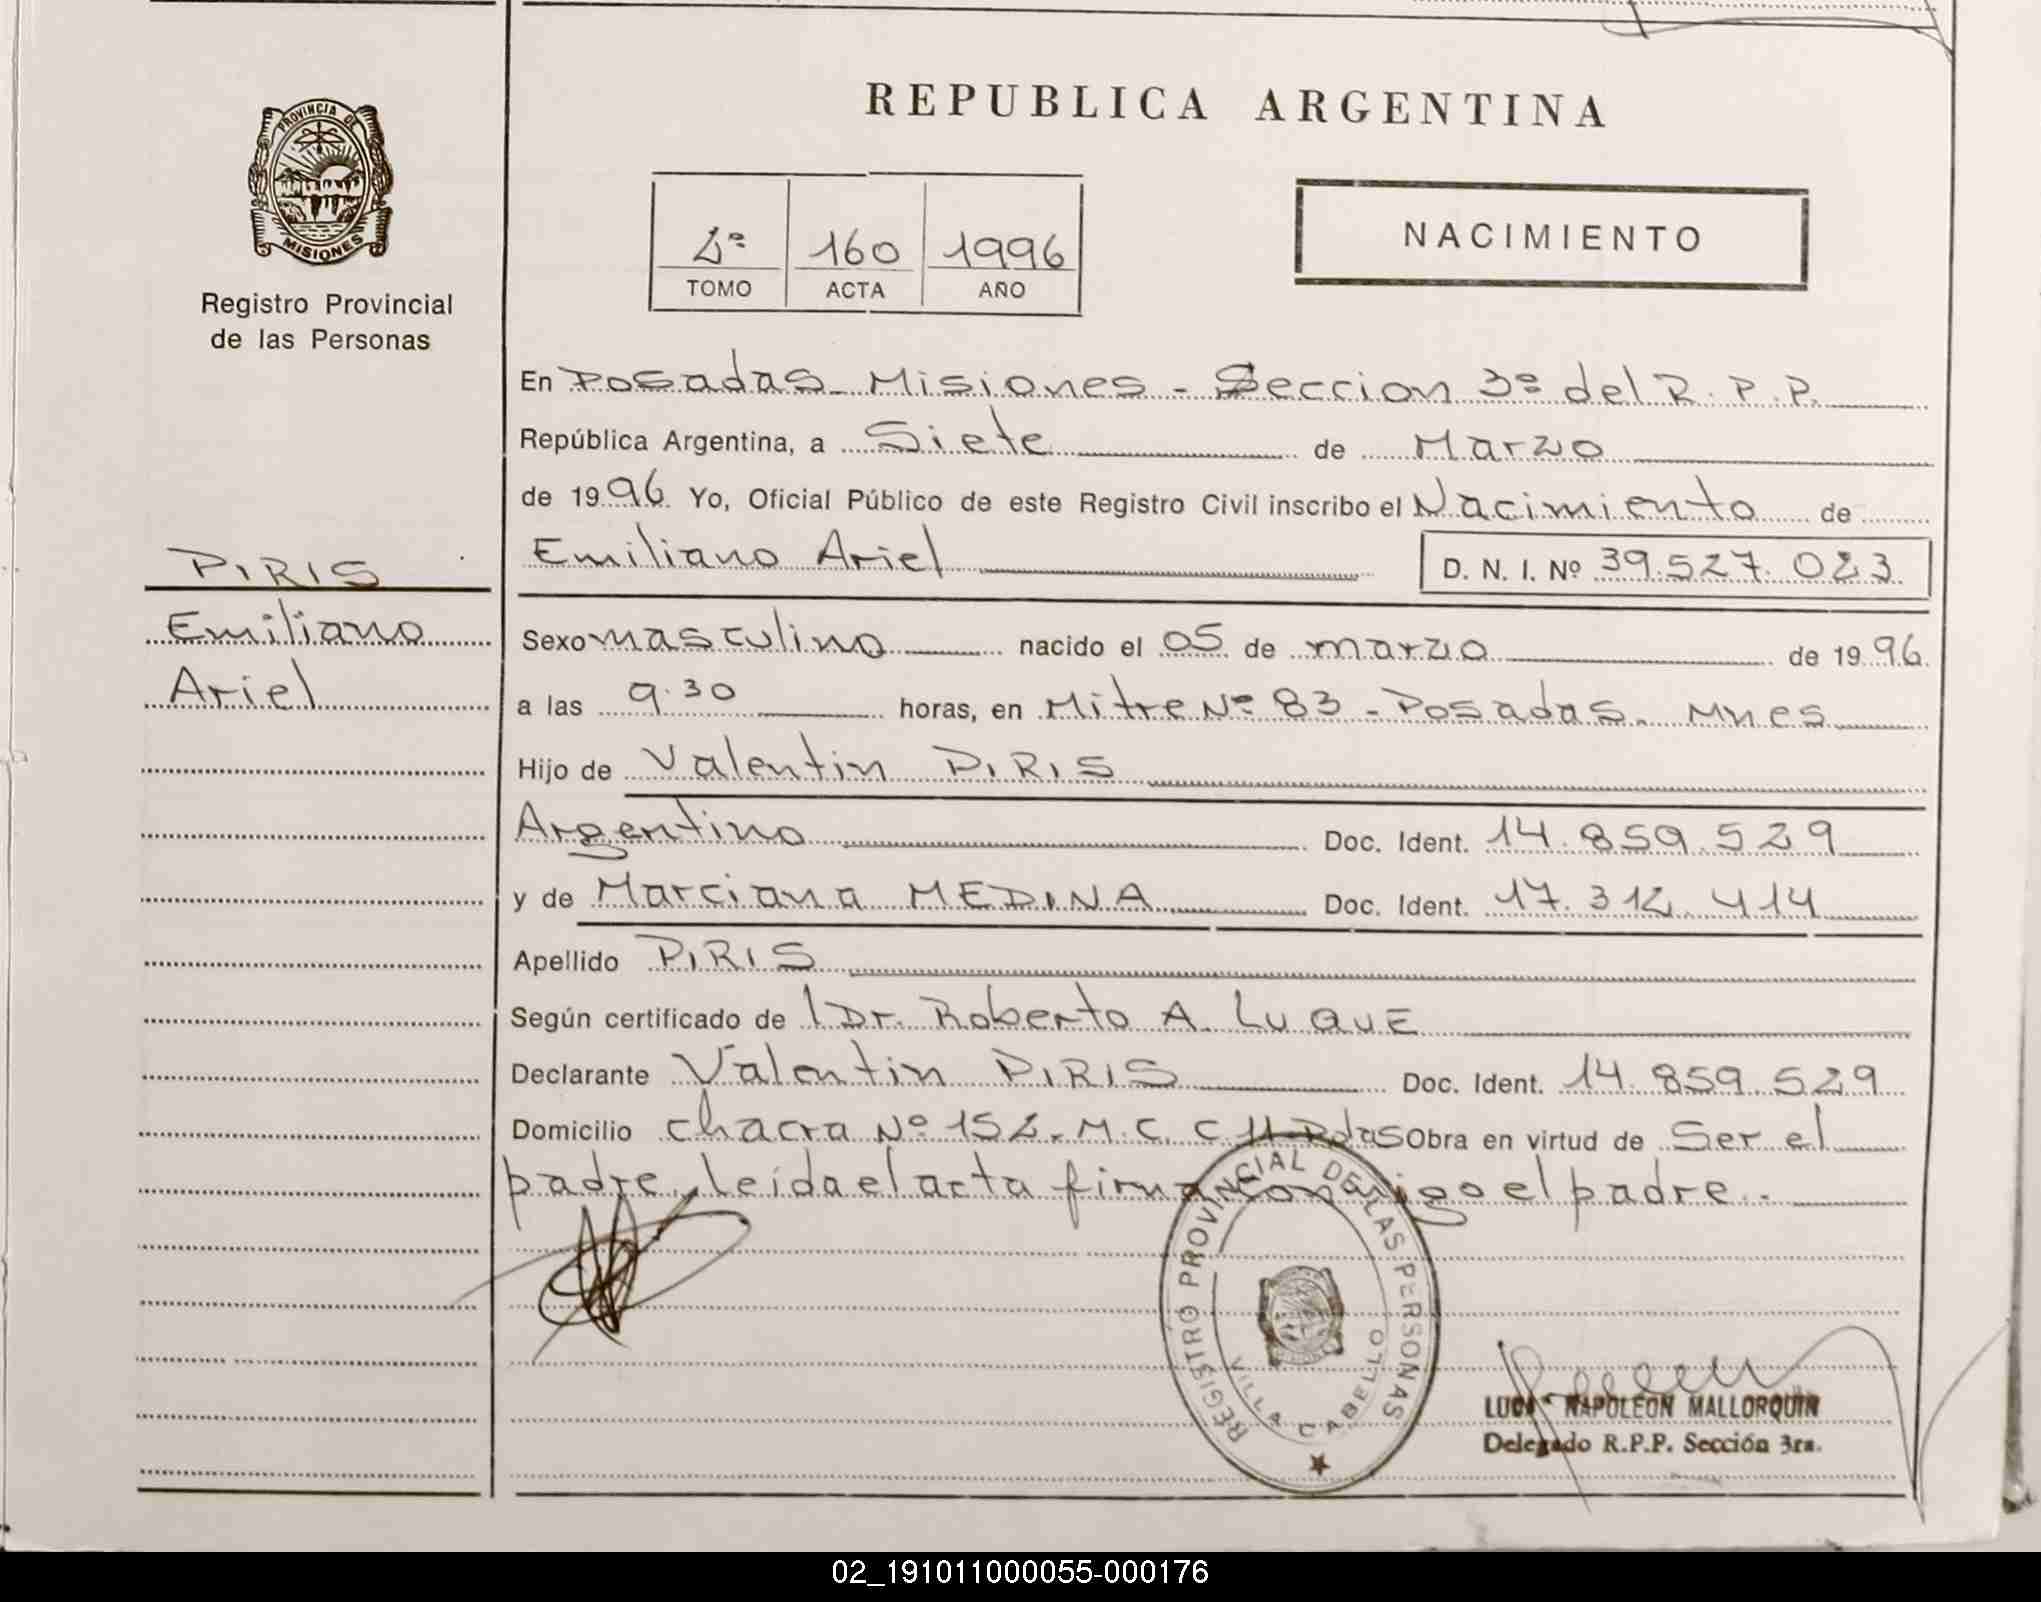 REPUBLICA ARGENTINA
PROVINCIA DE
MISIONES
Registro Provincial
de las Personas
NACIMIENTO
160 1996
TOMO ACTA AÑO
En Posadas - Misiones - Seccion 3º del R. P. P.
República Argentina, a Siete de Marzo
de 1996 Yo, Oficial Público de este Registro Civil inscribo el Nacimiento de
Emiliano Ariel D. N. I. Nº 39.527.023
PIRIS
Emiliano
Ariel
Sexo masculino nacido el 05 de marzo de 1996.
a las 9.30 horas, en Mitre Nº 83 - Posadas - Mnes
Hijo de Valentin PIRIS
Argentino Doc. Ident. 14.859.529
y de Marciana MEDINA Doc. Ident. 17.312.414
Apellido PIRIS
Según certificado de l Dr. Roberto A. LUQUE
Declarante Valentin PIRIS Doc. Ident. 14.859.529
Domicilio chacra Nº 152 - M. C. C 11 - Pdas Obra en virtud de Ser el
padre, leida el acta firma conmigo el padre.-
REGISTRO PROVINCIAL DE LAS PERSONAS
VILLA CABELLO
NAPOLEON MALLORQUIN
Delegado R.P.P. Sección 3ra.
02_191011000055-000176